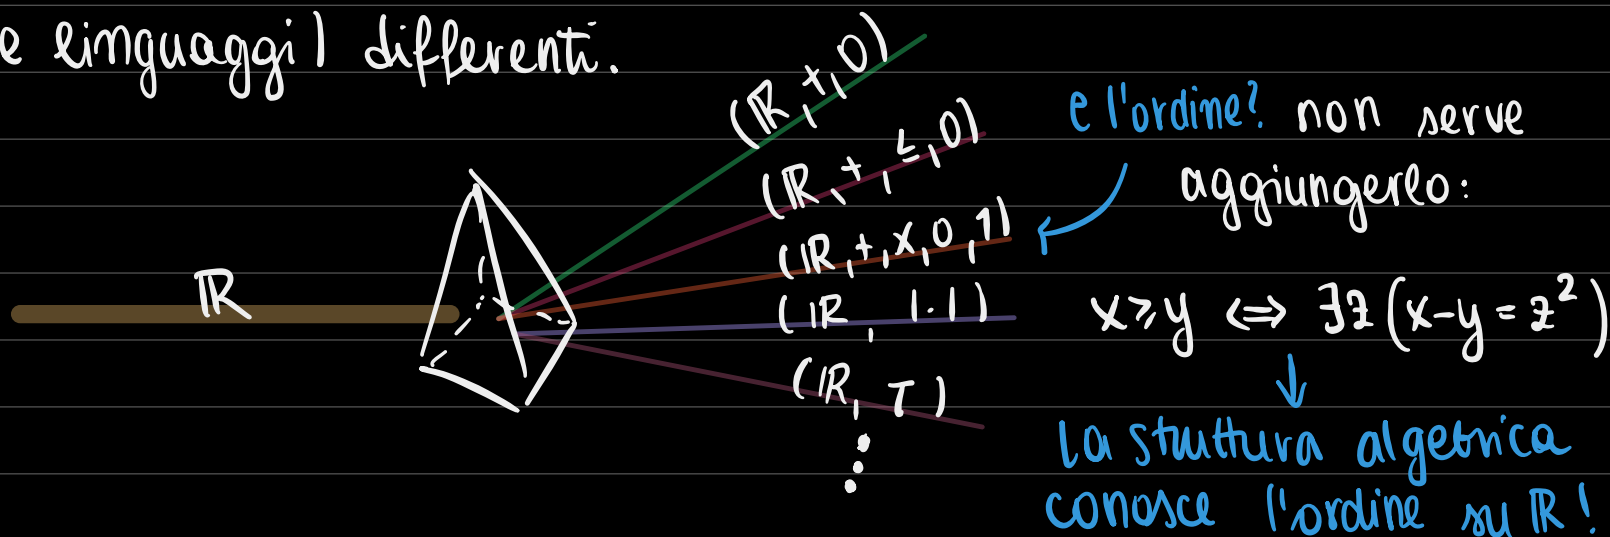 e linguaggi) differenti.
(ℝ,+,0)
(ℝ,+,≤,0)
(ℝ,+,×,0,1)
(ℝ, |·|)
(ℝ, τ)
ℝ
e l'ordine? non serve
aggiungerlo:
x≥y ⇔ ∃z(x-y=z²)
la struttura algebrica
conosce l'ordine su ℝ!